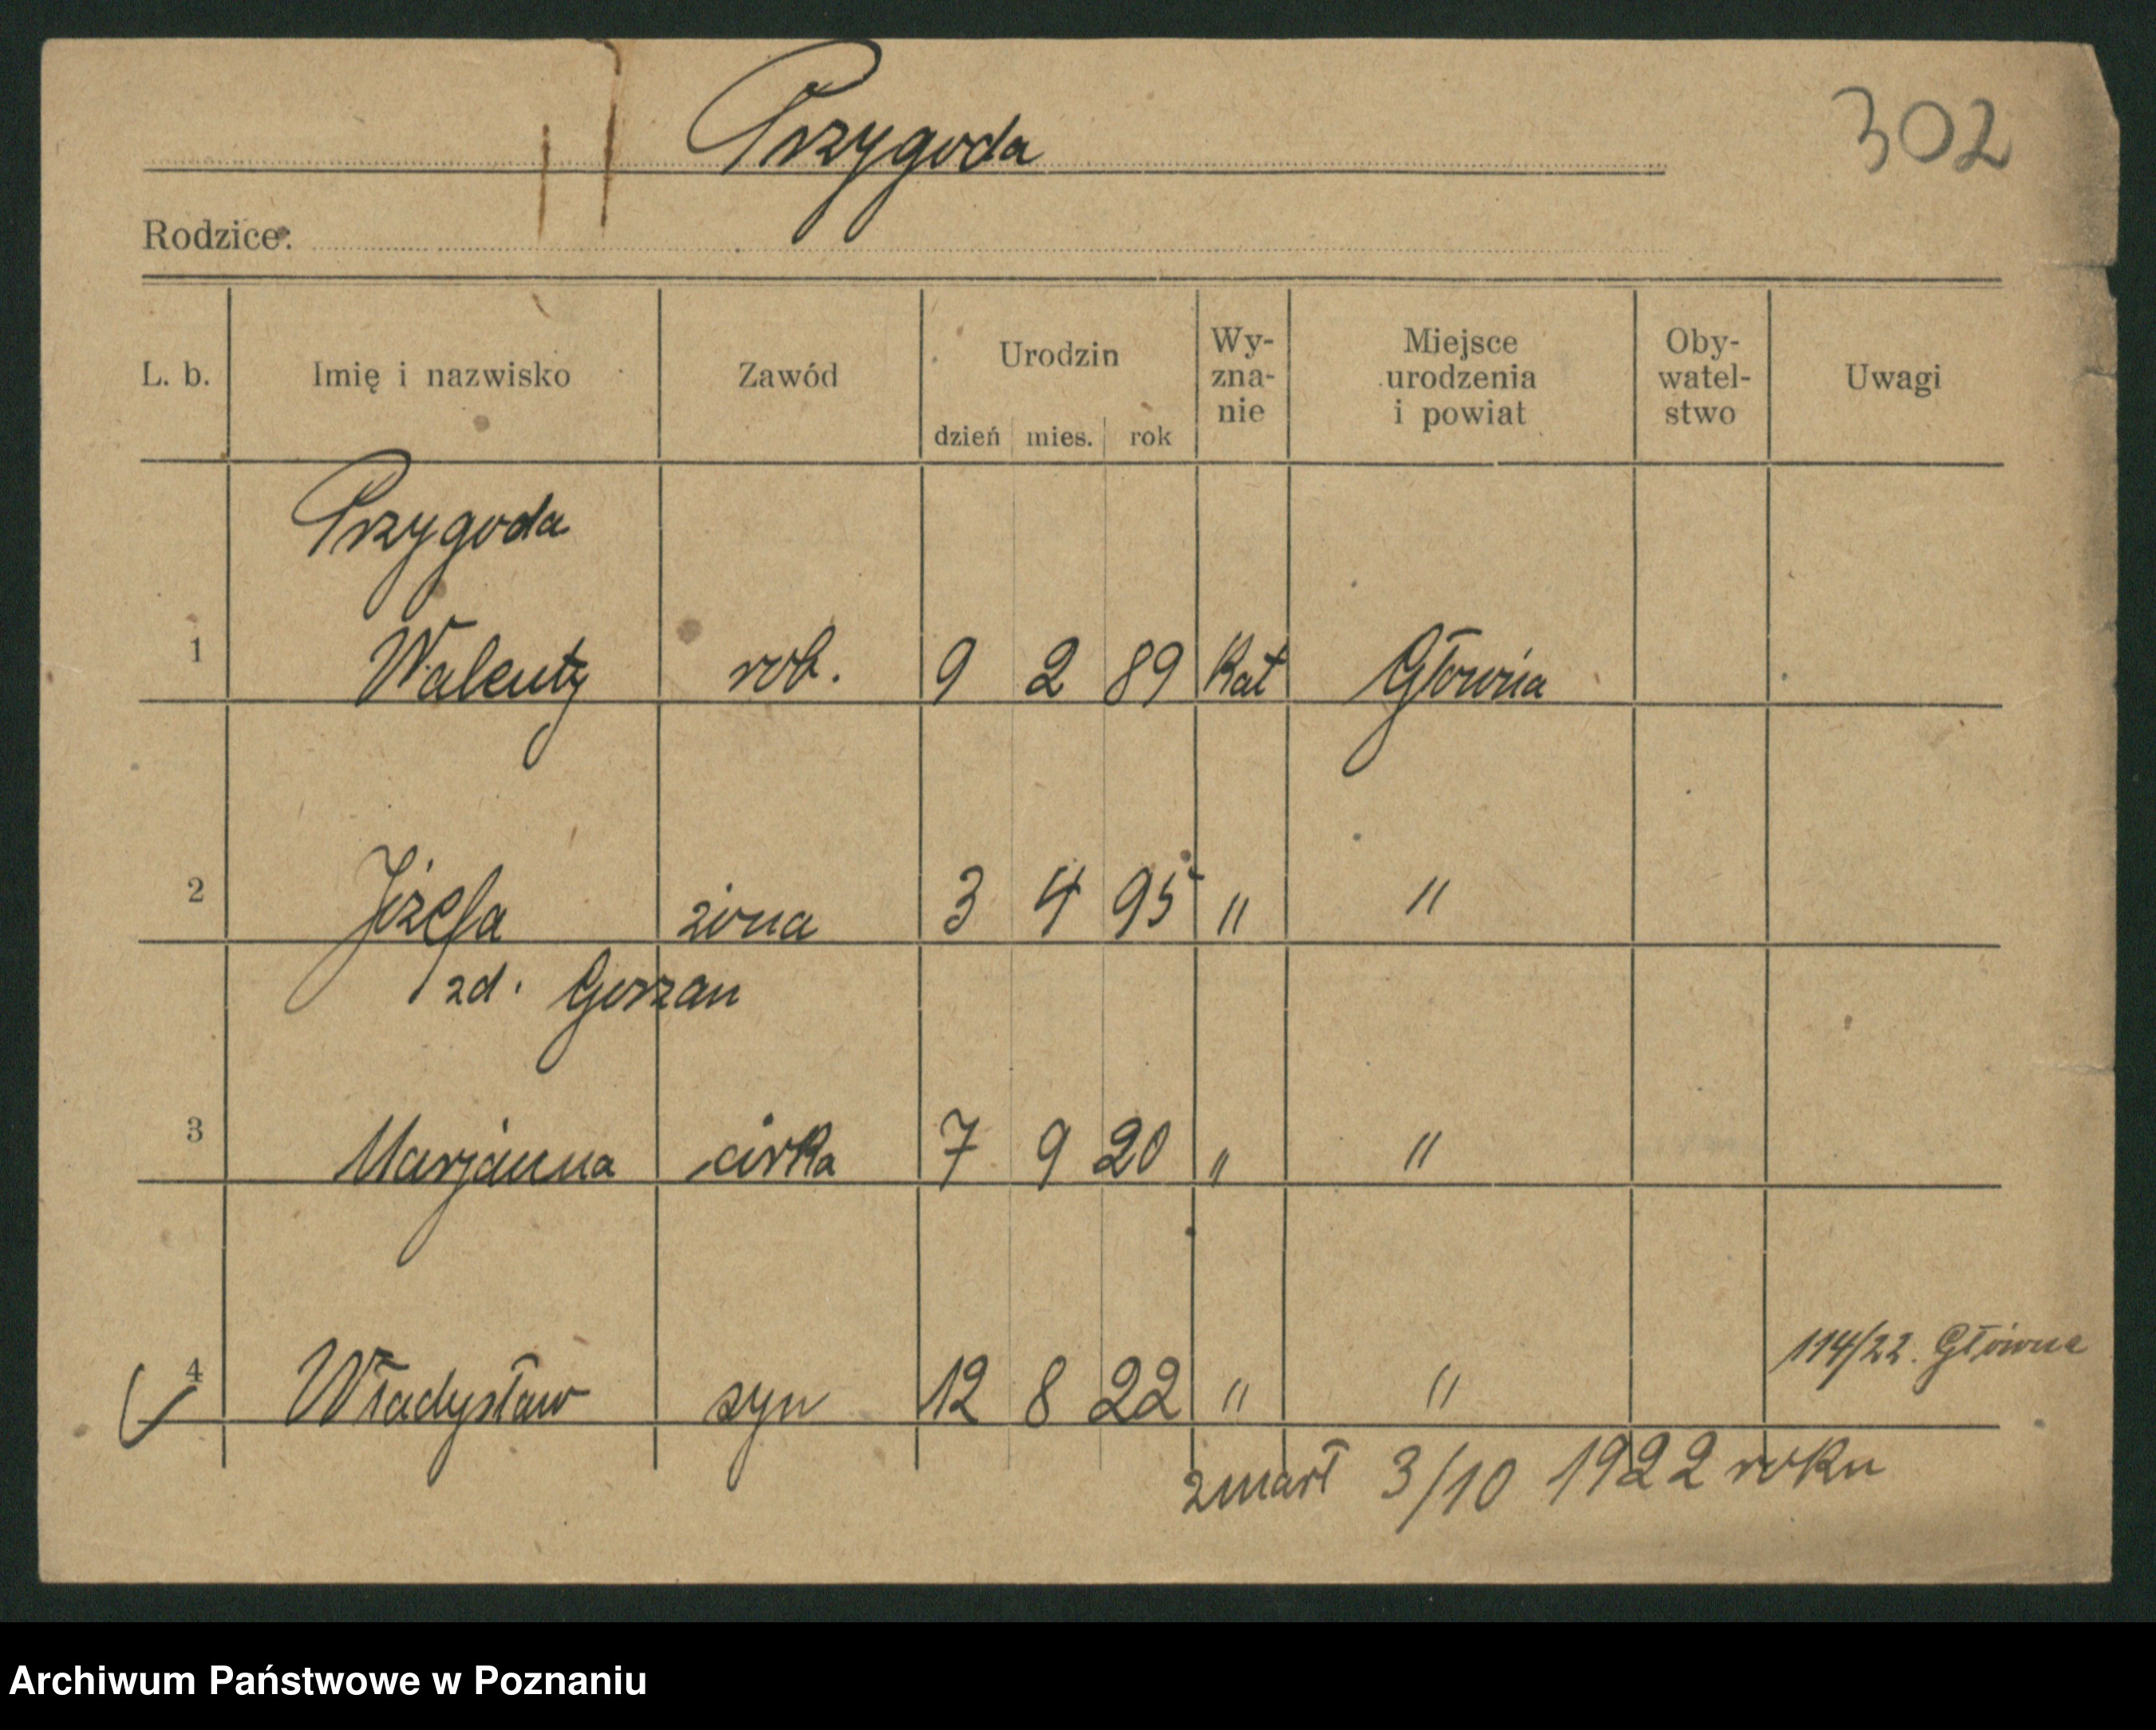 Przygoda
302
Rodzice:
L. b. Imię i nazwisko Zawód Urodzin dzień mies. rok Wy-zna-nie Miejsce urodzenia i powiat Oby-watel-stwo Uwagi
Przygoda
1 Walenty rob. 9 2 89 Kat Główna
2 Józefa żona 3 4 95 " "
zd. Gorzan
3 Marjanna córka 7 9 20 " "
114/22. Główna
4 Władysław syn 12 8 22 " "
zmarł 3/10 1922 roku
Archiwum Państwowe w Poznaniu